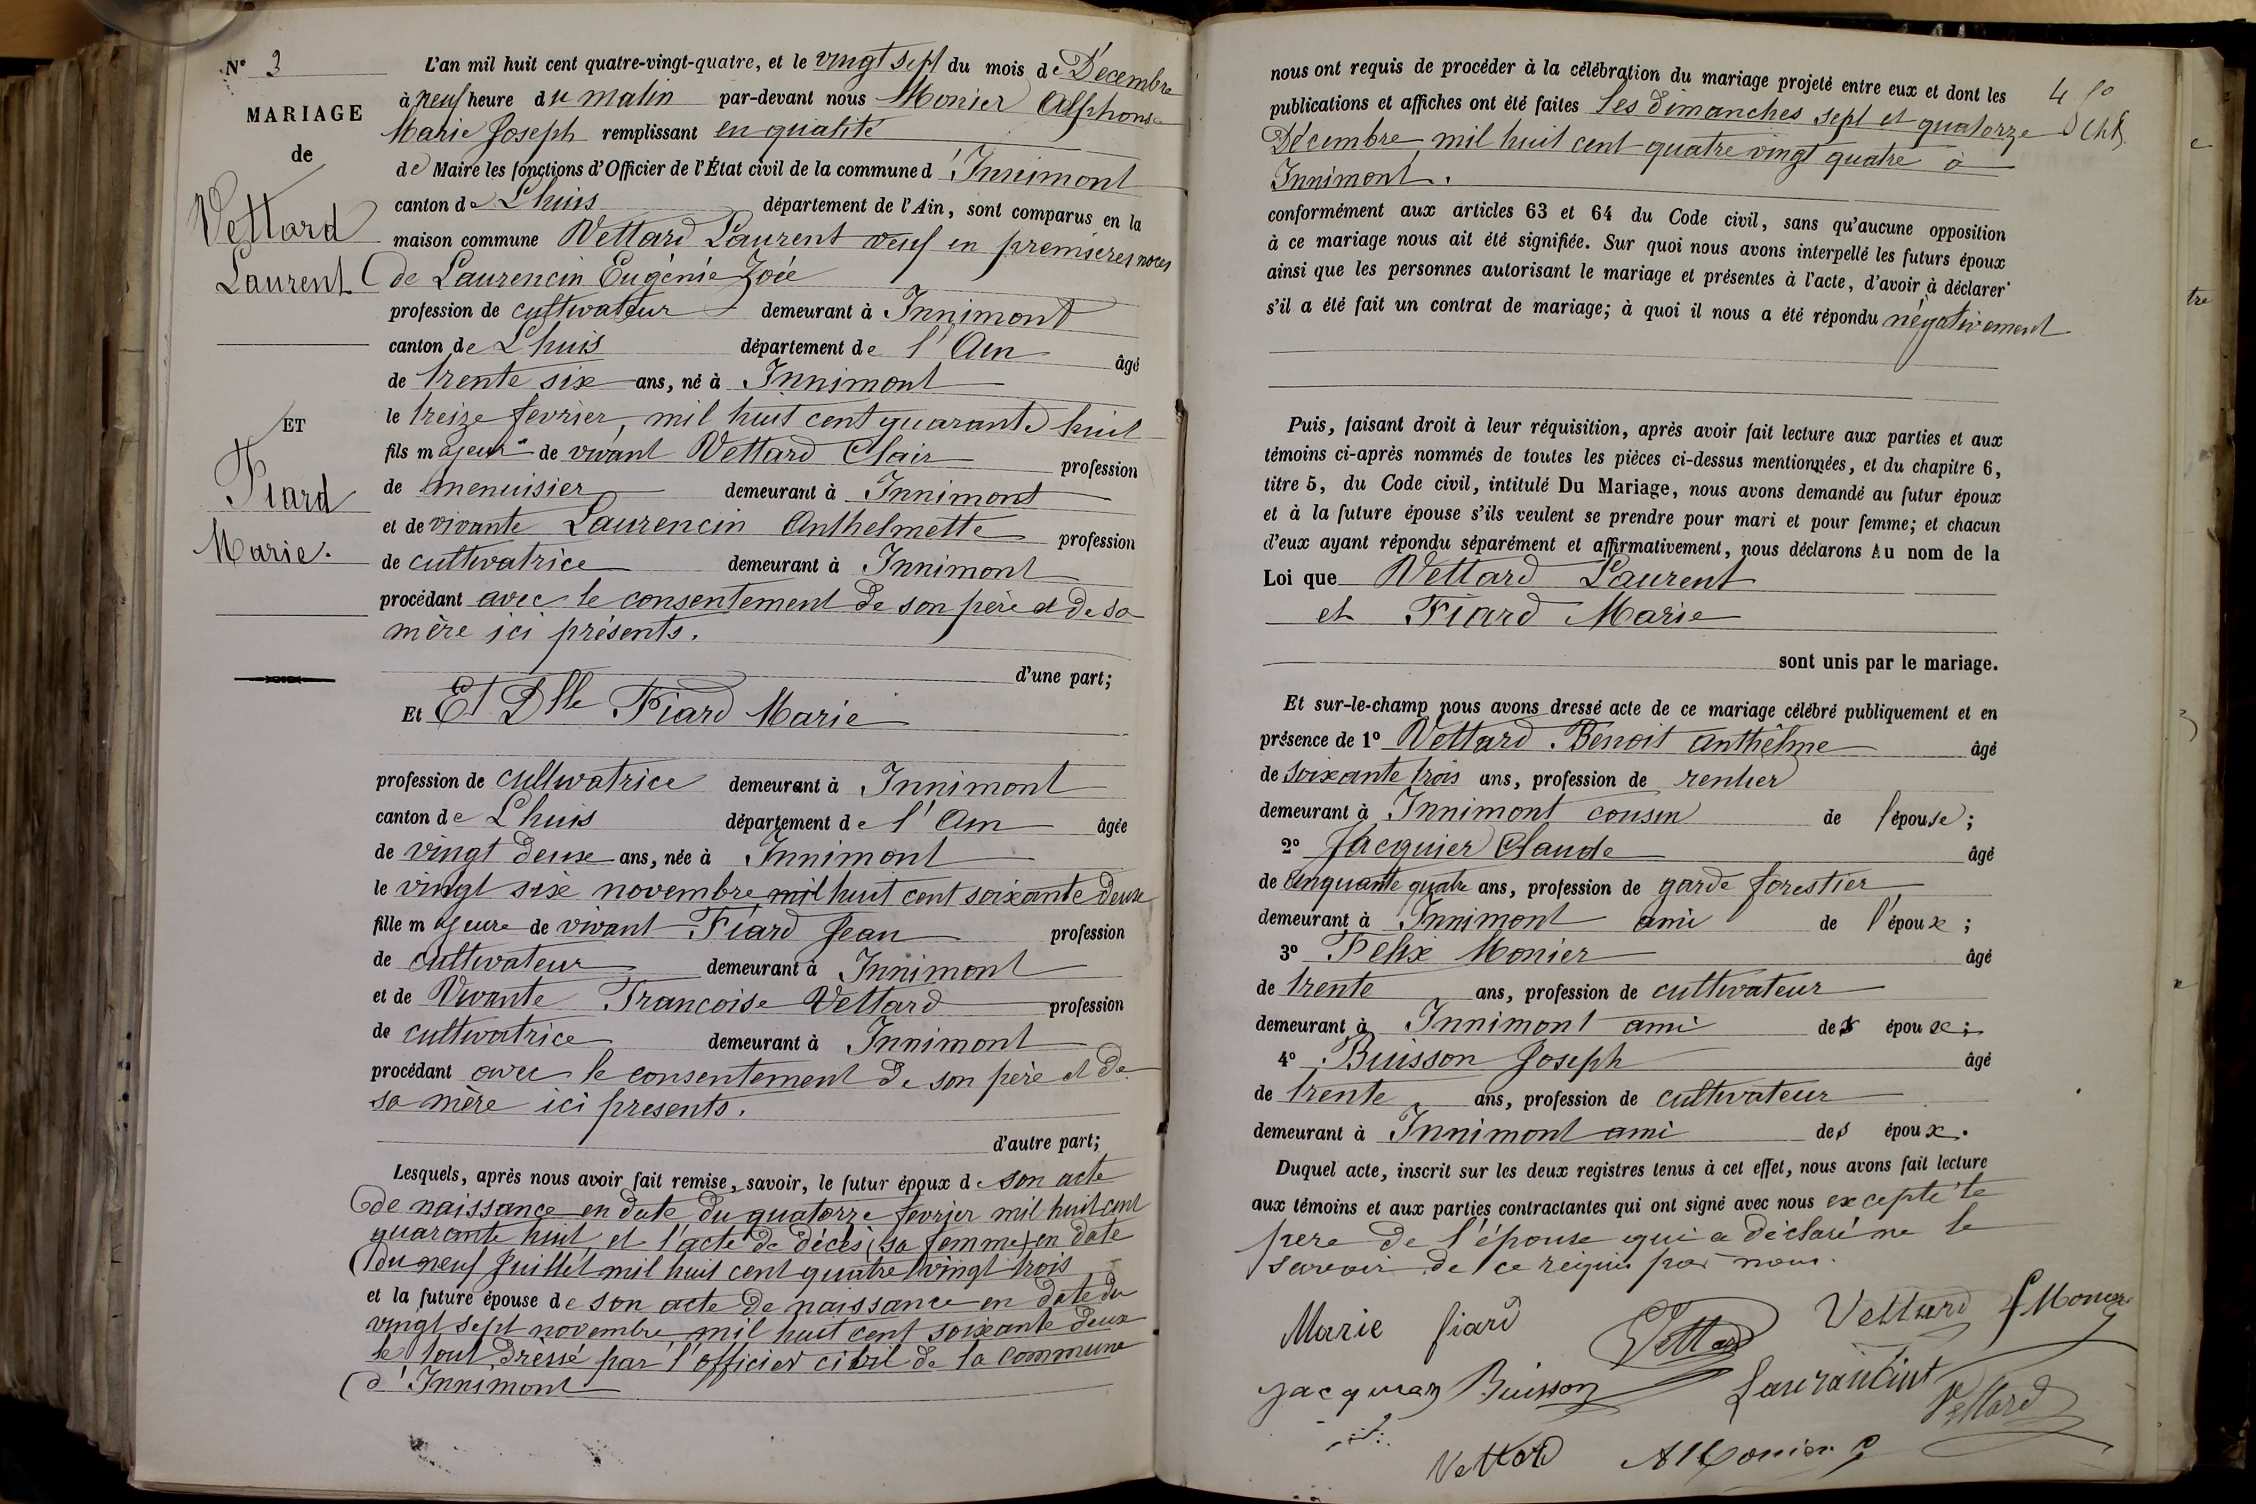 N° 3
MARIAGE
de
Vettard
Laurent
ET
Fiard
Marie.
L'an mil huit cent quatre-vingt-quatre, et le vingt sept du mois de Décembre
à neuf heure du matin par-devant nous Monier Alphonse
Marie Joseph remplissant en qualité
de Maire les fonctions d'Officier de l'État civil de la commune d'Innimont
canton de Lhuis département de l'Ain, sont comparus en la
maison commune Vettard Laurent veuf en premières noces
de Laurencin Eugénie Zoée
profession de cultivateur demeurant à Innimont
canton de Lhuis département de l'Ain âgé
de trente six ans, né à Innimont
le treize fevrier, mil huit cent quarante huit
fils majeur de vivant Vettard Clair profession
de menuisier demeurant à Innimont
et de vivante Laurencin Anthelmette profession
de cultivatrice demeurant à Innimont
procédant avec le consentement de son père et de sa
mère ici présents.
d'une part;
Et Et Dlle Fiard Marie
profession de cultivatrice demeurant à Innimont
canton de Lhuis département de l'Ain âgée
de vingt deux ans, née à Innimont
le vingt six novembre mil huit cent soixante deux
fille majeure de vivant Fiard Jean profession
de cultivateur demeurant à Innimont
et de Vivante Francoise Vettard profession
de cultivatrice demeurant à Innimont
procédant avec le consentement de son père et de
sa mère ici presents.
d'autre part;
Lesquels, après nous avoir fait remise, savoir, le futur époux de son acte
de naissance en date du quatorze fevrier mil huit cent
quarante huit, et l'acte de décès (sa femme) en date
du neuf Juillet mil huit cent quatre vingt trois
et la future épouse de son acte de naissance en date du
vingt sept novembre mil huit cent soixante deux
le tout dressé par l'officier civil de la commune
d'Innimont
nous ont requis de procéder à la célébration du mariage projeté entre eux et dont les
publications et affiches ont été faites les dimanches sept et quatorze
Décembre mil huit cent quatre vingt quatre à
Innimont.
conformément aux articles 63 et 64 du Code civil, sans qu'aucune opposition
à ce mariage nous ait été signifiée. Sur quoi nous avons interpellé les futurs époux
ainsi que les personnes autorisant le mariage et présentes à l'acte, d'avoir à déclarer
s'il a été fait un contrat de mariage; à quoi il nous a été répondu négativement
Puis, faisant droit à leur réquisition, après avoir fait lecture aux parties et aux
témoins ci-après nommés de toutes les pièces ci-dessus mentionnées, et du chapitre 6,
titre 5, du Code civil, intitulé Du Mariage, nous avons demandé au futur époux
et à la future épouse s'ils veulent se prendre pour mari et pour femme; et chacun
d'eux ayant répondu séparément et affirmativement, nous déclarons Au nom de la
Loi que Vettard Laurent
et Fiard Marie
sont unis par le mariage.
Et sur-le-champ nous avons dressé acte de ce mariage célébré publiquement et en
présence de 1° Vettard Benoit Anthelme âgé
de soixante trois ans, profession de rentier
demeurant à Innimont cousin de l'épouse;
2° Jacquier Claude âgé
de Cinquante quatre ans, profession de garde forestier
demeurant à Innimont ami de l'époux;
3° Felix Monier âgé
de trente ans, profession de cultivateur
demeurant à Innimont ami des époux;
4° Buisson Joseph âgé
de trente ans, profession de cultivateur
demeurant à Innimont ami des époux.
Duquel acte, inscrit sur les deux registres tenus à cet effet, nous avons fait lecture
aux témoins et aux parties contractantes qui ont signé avec nous excepté le
pere de l'épouse qui a déclaré ne le
savoir de ce requis par nous.
Marie fiard Vettard Vettard f Monier
Jacquier Buisson Laurancint Vettard
Vettard A Monier